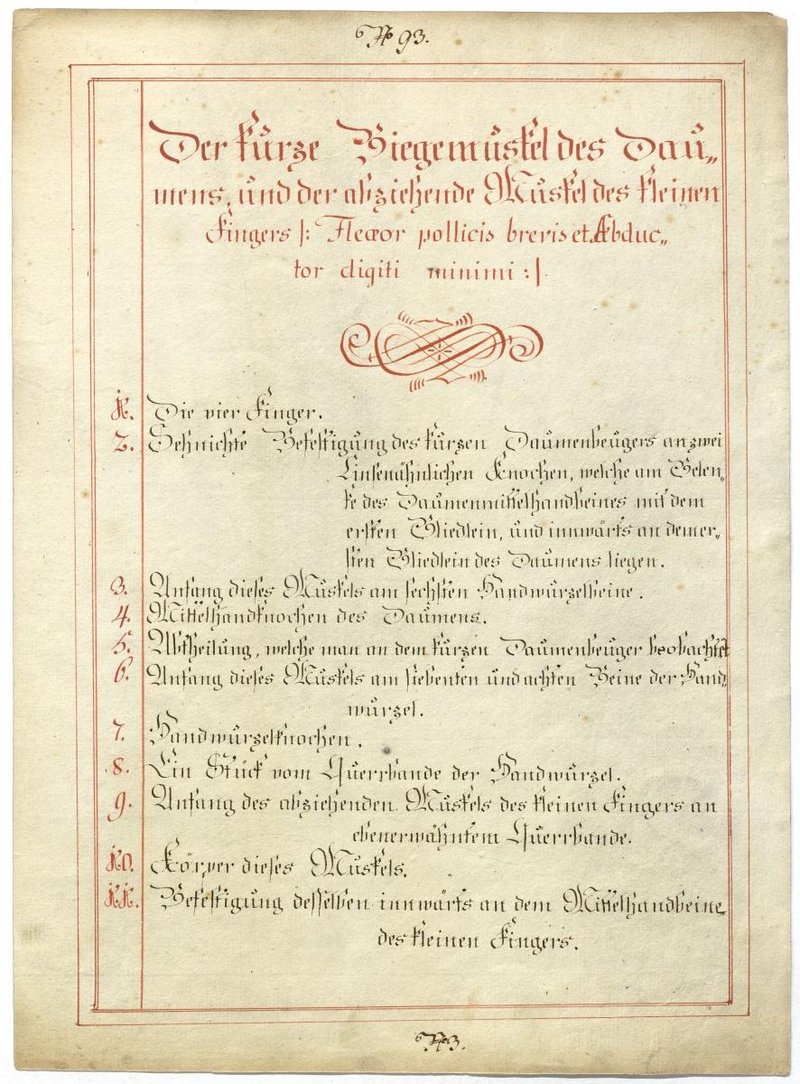 No 93.
Der kurze Biegemuskel des Dau„
mens, und der abziehende Muskel des kleinen
Fingers |: Flexor pollicis brevis et Abduc„
tor digiti minimi :|
1. Die vier Finger.
2. Sehnichte Befestigung des kurzen Daumenbeugers an zwei
Linsenähnlichen Knochen, welche am Gelen„
ke des Daumenmittelhandbeines mit dem
ersten Gliedlein, und innwärts an dem er„
sten Gliedlein des Daumens liegen.
3. Anfang dieses Muskels am sechsten Handwurzelbeine.
4. Mittelhandknochen des Daumens.
5. Abtheilung, welche man an dem kurzen Daumenbeuger beobachtet
6. Anfang dieses Muskels am siebenten und achten Beine der Hand
wurzel.
7. Handwurzelknochen.
8. Ein Stück vom Querbande der Handwurzel.
9. Anfang des abziehenden Muskels des kleinen Fingers an
ebenerwähntem Querbande.
10. Körper dieses Muskels.
11. Befestigung desselben innwärts an dem Mittelhandbeine
des kleinen Fingers.